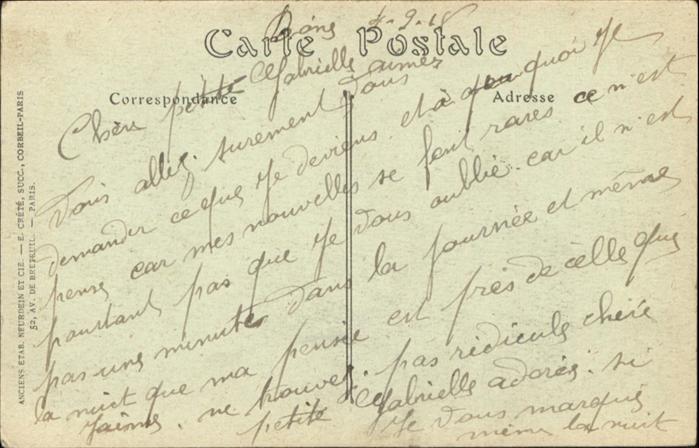 Bône 4-9-18
Carte Postale
Correspondance
Adresse
Chère petite Gabrielle aimée
Vous allez surement vous
demander ce que je deviens et à quoi je
pense car mes nouvelles se font rares ce n'est
pourtant pas que je vous oublie car il n'est
pas une minute dans la journée et même
la nuit que ma pensée est près de celle que
j'aime. ne trouvez pas ridicule chère
petite Gabrielle adorée. si
je vous marque
même la nuit
ANCIENS ÉTAB. NEURDEIN ET CIE. — E. CRÉTÉ, SUCC., CORBEIL-PARIS
52, AV. DE BRETEUIL. — PARIS.